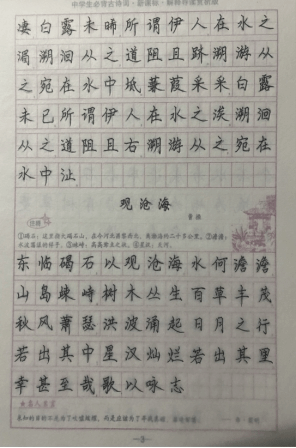 凄白露未晞所谓伊人在水之
湄溯洄从之道阻且跻溯游从
之宛在水中坻蒹葭采采白露
未已所谓伊人在水之涘溯洄
从之道阻且右溯游从之宛在
水中沚
观沧海
曹操
东临碣石以观沧海水何澹澹
山岛竦峙树木丛生百草丰茂
秋风萧瑟洪波涌起日月之行
若出其中星汉灿烂若出其里
幸甚至哉歌以咏志